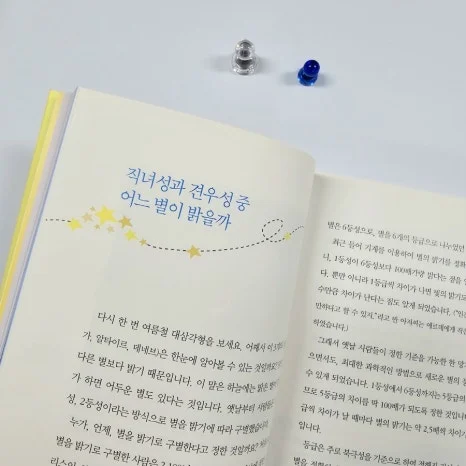 직녀성과 견우성 중
어느 별이 밝을까
다시 한 번 여름철 대삼각형을 보세요. 어째서 이 3
가, 알타이르, 데네브)은 한눈에 알아볼 수 있는 것일까요?
다른 별보다 밝기 때문입니다. 이 말은 하늘에는 밝은 별이
가 하면 어두운 별도 있다는 것입니다. 옛날부터 사람들은
성, 2등성이라는 방식으로 별을 밝기에 따라 구별했습니다.
누가, 언제, 별을 밝기로 구별한다고 정한 것일까요?
별을 밝기로 구별한 사람은
별은 6등성으로, 별을 6개의 등급으로 나누었던
최근 들어 기계를 이용하여 별의 밝기를 정확
니, 1등성이 6등성보다 100배가량 밝다는 것을
다. 뿐만 아니라 1등급씩 차이가 나면 빛의 밝기도
수만큼 차이가 난다는 점도 알게 되었습니다.
만하다고 할 수 있지.”라고 한 아저씨는
하였습니다.)
그래서 옛날 사람들이 정한 기준을 가능한 한
으면서도, 최대한 과학적인 방법으로 새로운 별의
수 있게 되었습니다. 1등성에서 6등성까지는 5등급의
므로 5등급의 차이를 딱 100배가 되도록 정한 것입니다.
급씩 차이가 날 때마다 별의 밝기는 약 2.5배씩 차이가
등급은 주로 북극성을 기준으로 하여 정해진